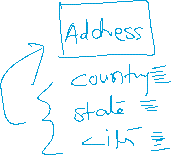 Address
country
state
city